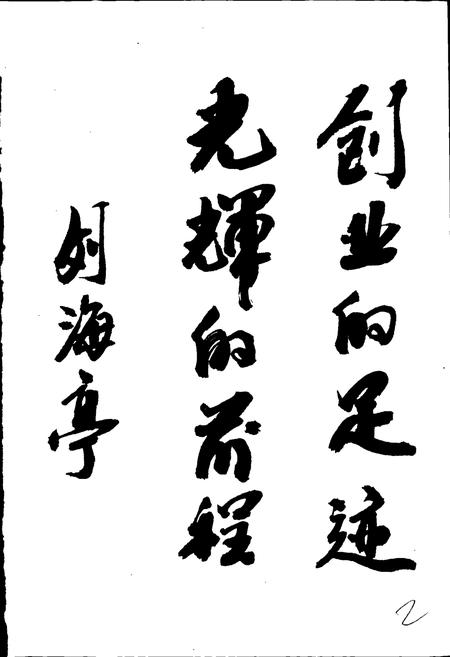 创业的足迹
光輝的前程
刘海亭
2